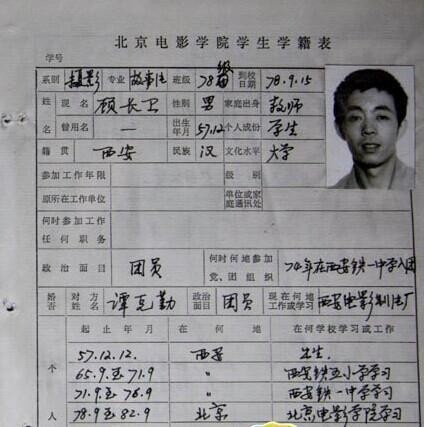 北京电影学院学生学籍表
学号
系别 摄影 专业 故事片 班级 78级 到校日期 78.9.15
姓名 现名 顾长卫 性别 男 家庭出身 教师
曾用名 — 出生年月 57.12 个人成份 学生
籍贯 西安 民族 汉 文化水平 大学
参加工作年限 级别
原所在工作单位 单位或家庭通讯处
何时参加工作任何职务
政治面目 团员 何时何地参加党、团组织 74年在西安铁一中学入团
婚否 对方姓名 谭克勤 政治面目 团员 现在何地工作或学习 西安电影制片厂
起止年月 在何地 在何学校学习或工作
57.12.12. 西安 出生.
65.9.至71.9 〃 西安铁五小学学习
71.9.至76.9 〃 西安铁一中学学习
个人 78.9至82.9 北京 北京电影学院学习